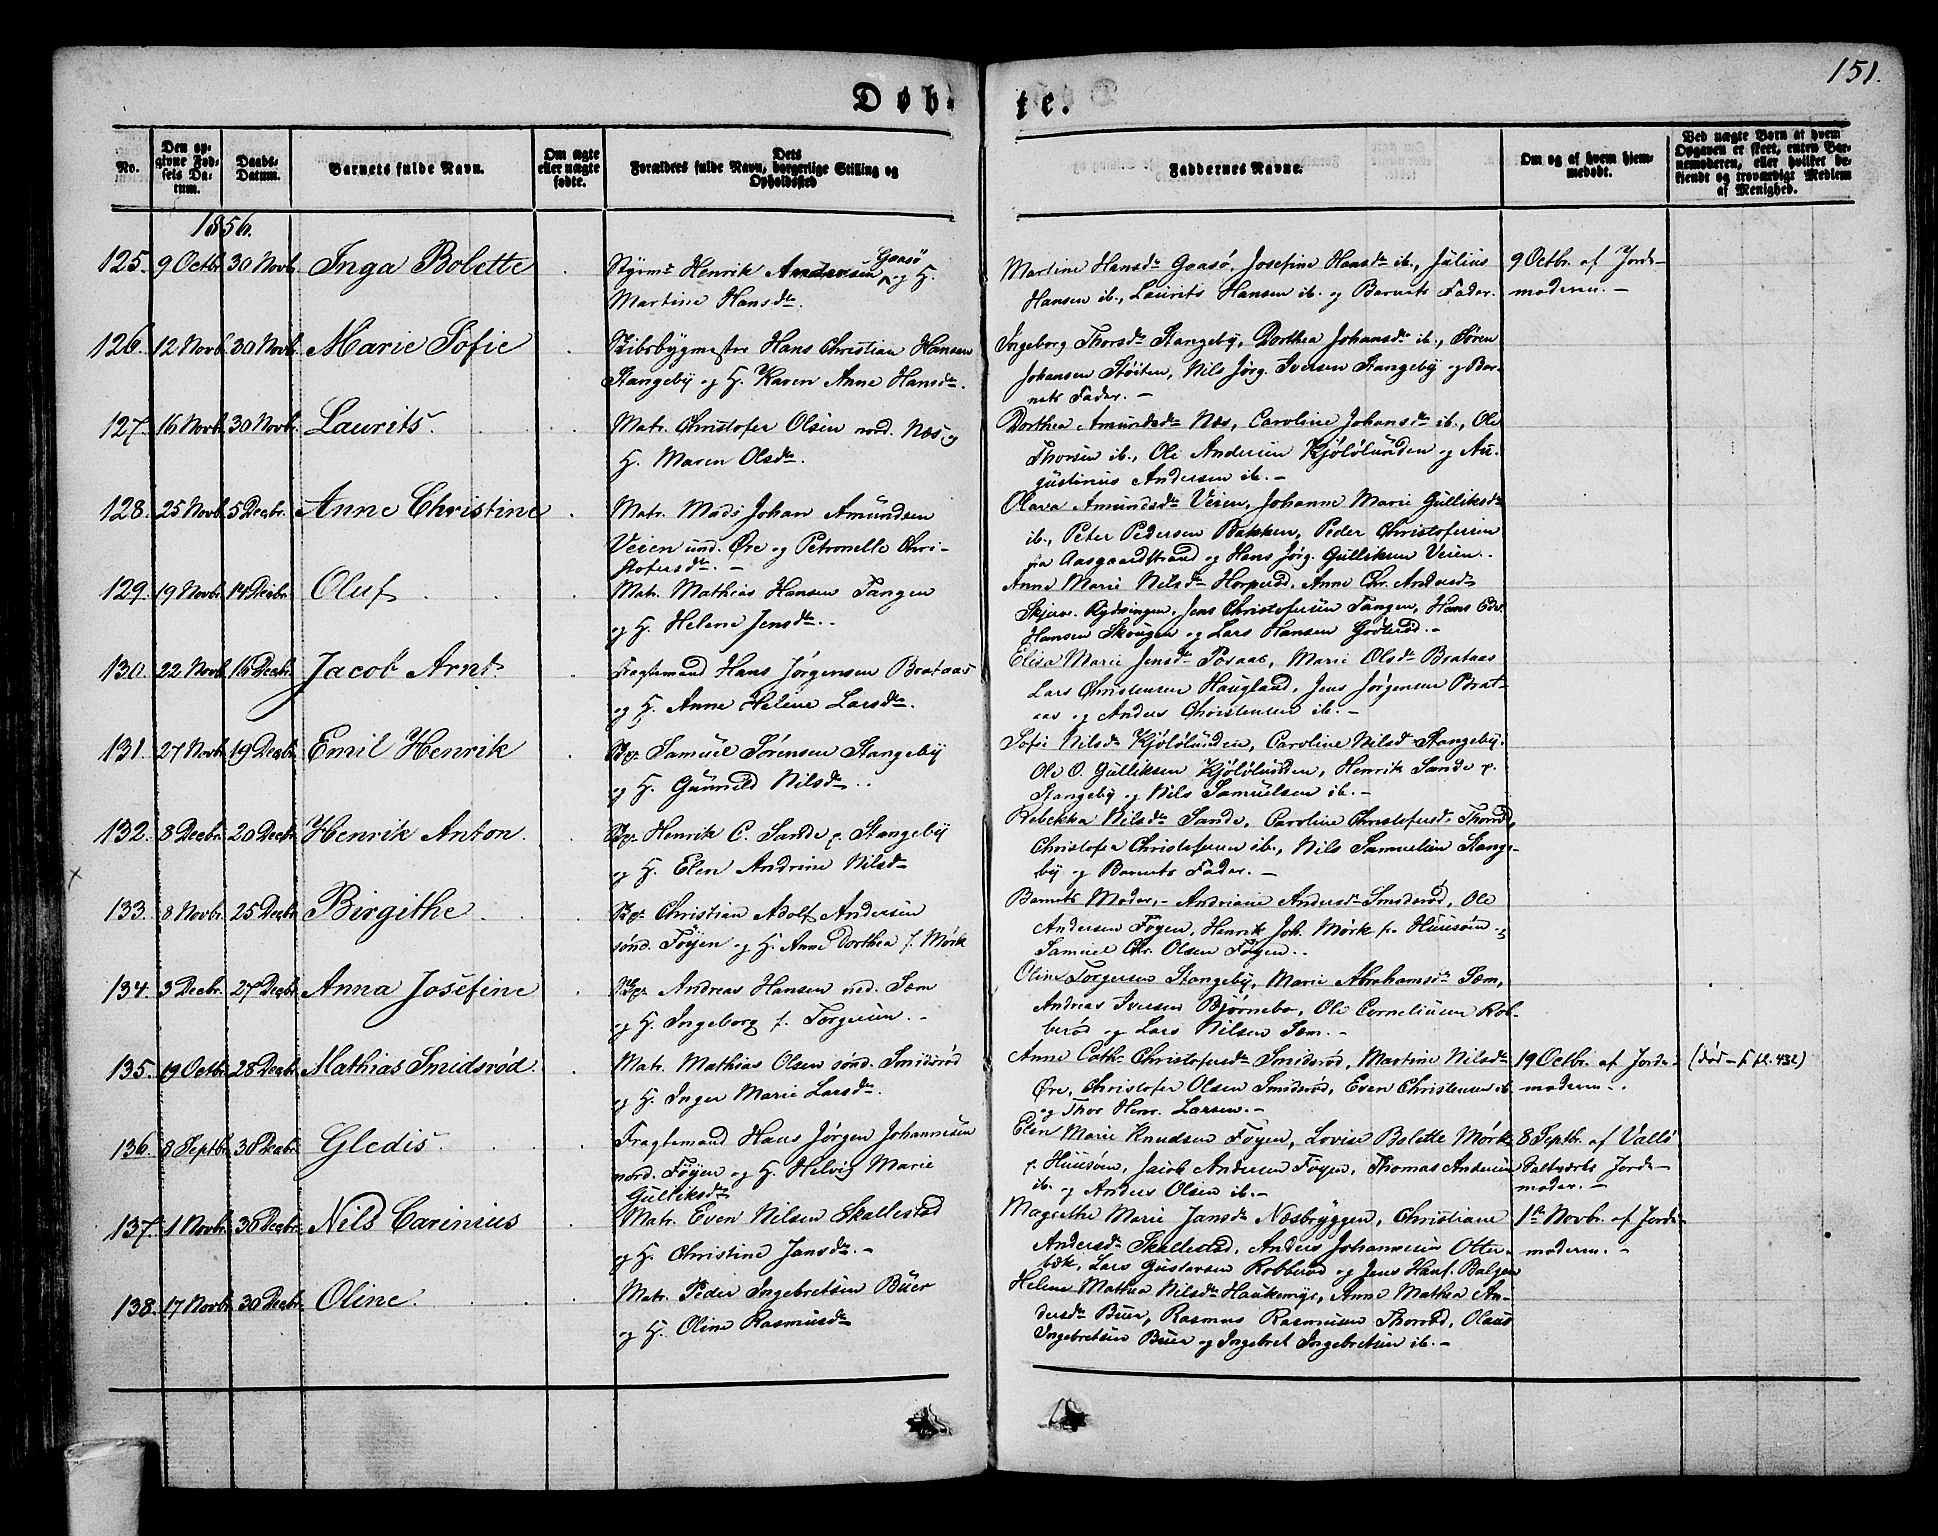 151.
Døb-te.
No.
Den opgivne Fødsels Datum.
Daabs-Datum.
Barnets fulde Navn.
Om ægte eller uægte fødte.
Forældres fulde Navn, Dets borgerlige Stilling og Opholdssted
Faddernes Navne.
Om og af hvem hjemmedøbt.
Ved uægte Børn at hvem Opgaven er skeet, enten Barnemoderen, eller hvilket bekjendt og troværdigt Medlem af Menighed.
1856.
125. 9 Octbr. 30 Novb. Inga Bolette
Styrm. Henrik Andersen Gaasø og H.
Martine Hansdtr
Martine Hansdtr Gaasø, Josefine Hansdtr ib., Julius
Hansen ib., Laurits Hansen ib. og Barnets Fader.
9 Octbr. af Jorde-
moderen.-
126. 12 Novb. 30 Novb. Marie Sofie
Skibsbygmester Hans Christian Hansen
Stangeby og H. Karen Anne Hansdtr.
Ingeborg Thorsdtr Stangeby, Dorthea Johansdtr ib., Søren
Johansen Støiten, Nils Jørg. Iversen Stangeby og Bar-
nets Fader.-
127. 16 Novb. 30 Novb. Laurits.
Matr. Christofer Olsen nord. Næs og
H. Maren Olsdtr.
Dorthea Amundsdtr Næs, Caroline Johansdtr ib., Ole
Thorsen ib., Ole Andersen Kjølølunden og Au-
gustinius Andersen ib.-
128. 25 Novb. 5 Decbr. Anne Christine
Matr. Mads Johan Amundsen
Veien und. Øre og Petronelle Chri-
stofersdtr.-
Olava Amundsdtr Veien, Johanne Marie Gulliksdtr
ib., Peter Pedersen Bakken, Peder Christofersen
fra Aasgaardstrand og Hans Jørg. Gulliksen Veien.
129. 19 Novbr. 14 Decbr. Oluf
Matr. Mathias Hansen Tangen
og H. Helene Jensdtr.
Anne Marie Nilsdtr Horperød, Anne Chr. Andersdtr
Skjerv. Rydningen, Jens Christofersen Tangen, Hans Edv.
Hansen Skougen og Lars Hansen Goderød.-
130. 22 Novb. 16 Decbr. Jacob Arnt.
Fragtemand Hans Jørgensen Brataas
og H. Anne Helene Larsdtr.
Elisa Marie Jensdtr Posaas, Marie Olsdtr Brataas
Lars Christensen Haugland, Jens Jørgensen Brat-
aas og Anders Christensen ib.-
131. 27 Novb. 19 Decbr. Emil Henrik
Bp. Samuel Sørensen Stangeby
og H. Gunnild Nilsdtr.
Sofie Nilsdtr Kjølølunden, Caroline Nilsdtr Stangeby.
Ole O. Gulliksen Kjølølunden, Henrik Sande p.
Stangeby og Nils Samuelsen ib.-
132. 8 Decbr. 20 Decbr. Henrik Anton.
Bp. Henrik C. Sande p. Stangeby
og H. Elen Andrine Nilsdtr
Rebekka Nilsdtr Sande, Caroline Christofersdtr Thorød,
Christofer Christofersen ib., Nils Samuelsen Stange-
by og Barnets Fader.-
133. 8 Novbr. 25 Decbr. Birgithe
Bp. Christian Adolf Andersen
sønd. Føyen og H. Anne Dorthea f. Mørk
Barnets Moder,- Andriane Andersdtr Smidsrød, Ole
Andersen Føyen, Henrik Joh. Mørk fr. Huusøen og
Samuel Chr. Olsen Føyen.
134. 3 Decbr. 27 Decbr. Anna Josefine
Bp. Andreas Hansen ned. Sæm
og H. Ingeborg f. Torgersen.-
Oline Torgersen Stangeby, Marie Abrahamsdtr Sæm,
Andreas Iversen Bjørnebo, Ole Corneliusen Rob-
berød og Lars Nilsen Sæm.-
135. 19 Octbr. 28 Decbr. Mathias Smidsrød.
Matr. Mathias Olsen sønd. Smidsrød
og H. Inger Marie Larsdtr.
Anne Cath. Christofersdtr Smidsrød, Martine Nilsdtr
Øre, Christofer Olsen Smidsrød, Even Christensen ib.
og Thor Henr. Larsen.-
19 Octbr. af Jorde-
moderen.
(død - f. fl. 432)
136. 8 Septbr. 30 Decbr. Gledis.
Fragtemand Hans Jørgen Johannesen
nord. Føyen og H. Helvig Marie
Gulliksdtr
Elen Marie Knudsen Føyen, Lovise Bolette Mørk
p. Huusøen, Jacob Andersen Føyen, Thomas Andersen
ib. og Anders Olsen ib.-
8 Septbr. af Vallø
Saltværks Jorde-
moder.-
137. 1 Novb. 30 Decbr. Nils Carinius
Matr. Even Nilsen Skallestad
og H. Christine Jansdtr.-
Magrethe Marie Jansdtr Næsbryggen, Christiane
Andersdtr Skallestad, Anders Johannesen Otter-
bæk, Lars Gustavsen Robberød og Jens Hans. Bolgen
1ste Novbr. af Jorde-
moderen.-
138. 17 Novb. 30 Decbr. Oline.
Matr. Peder Ingebretsen Buer
og H. Oline Rasmusdtr
Helene Mathea Nilsdtr Haukemyr, Anne Mathea An-
dersdtr Buer, Rasmus Rasmusen Thorød, Olaus
Ingebretsen Buer og Ingebret Ingebretsen ib.-